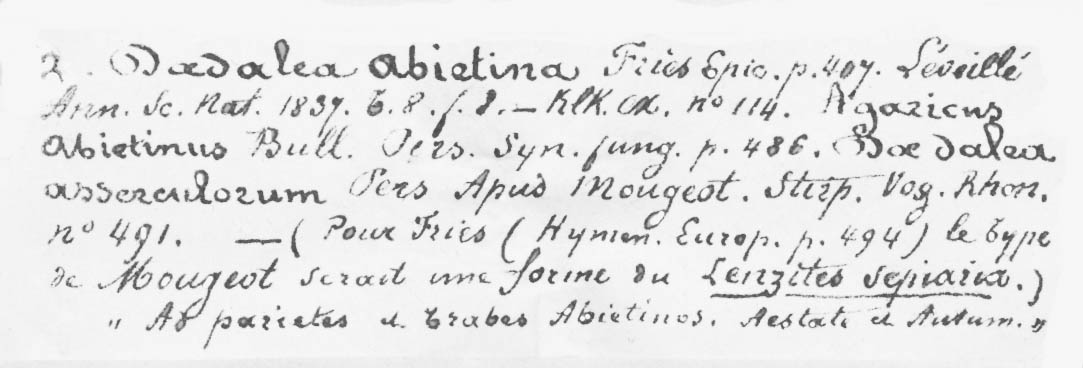 2. Dædalea Abietina Fries Epic. p. 407. Léveillé
Ann. Sc. Nat. 1837. t. 8. f. 8. — Klk. ex. nº 114. Agaricus
Abietinus Bull. Pers. Syn. fung. p. 486. Dædalea
asserculorum Pers Apud Mougeot. Stirp. Vog. Rhen.
nº 491. — (Pour Fries (Hymen. Europ. p. 494) le type
de Mougeot serait une forme du Lenzites sepiaria.)
" Ad parietes et trabes Abietinos. Aestate et Autum. "